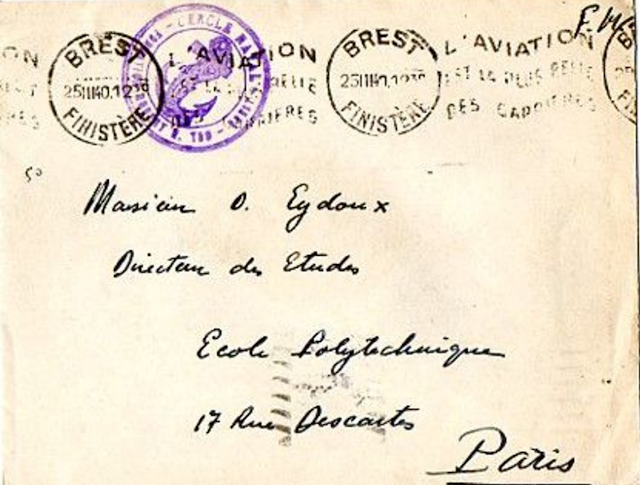 F.M.
BREST
25 II 40.1230
FINISTÈRE
CERCLE NAVAL
L'AVIATION
EST LA PLUS BELLE
DES CARRIÈRES
BREST
25 II 40.1230
FINISTÈRE
L'AVIATION
EST LA PLUS BELLE
DES CARRIÈRES
50
Monsieur D. Eydoux
Directeur des Etudes
Ecole Polytechnique
17 Rue Descartes
Paris